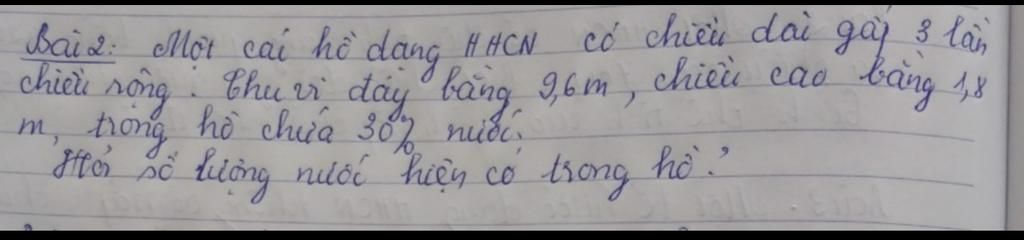 Bài 2: Một cái hồ dạng HHCN có chiều dài gấp 3 lần
chiều rộng. Chu vi đáy bằng 9,6m, chiều cao bằng 1,8
m, trong hồ chứa 30% nước.
Hỏi số lượng nước hiện có trong hồ?